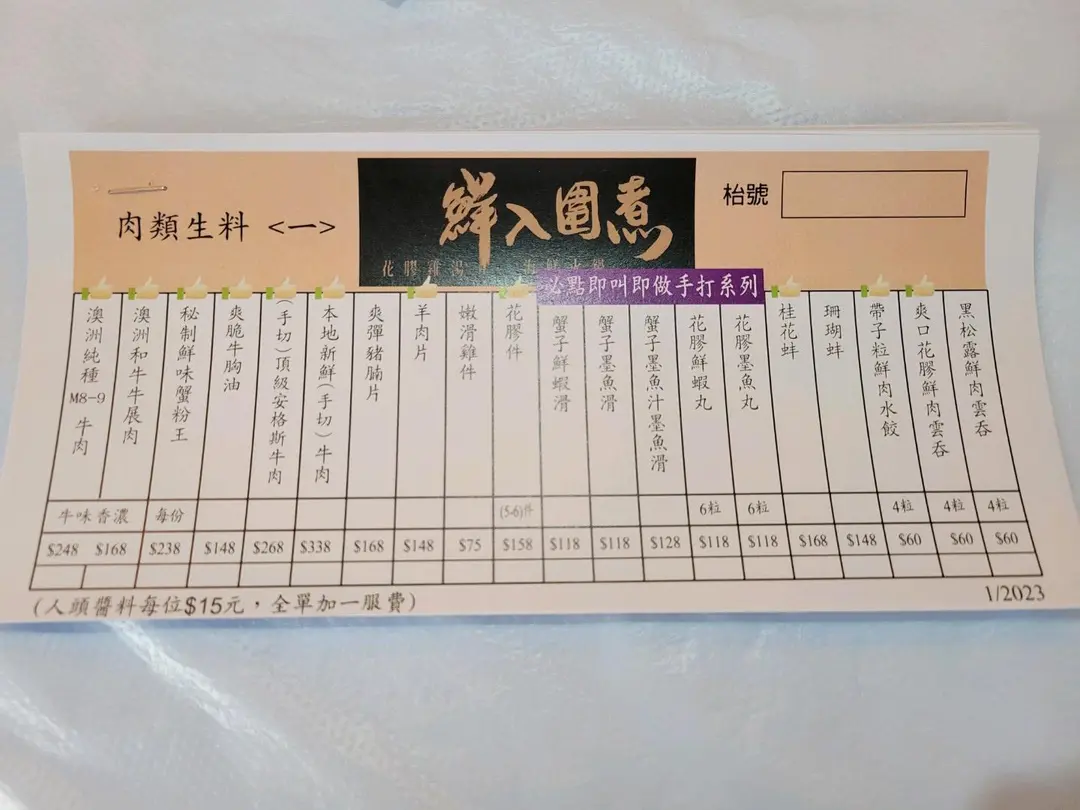 肉類生料 <一>
鮮入圍煮
枱號
必點即叫即做手打系列
澳洲純種M8-9牛肉
澳洲和牛牛展肉
秘制鮮味蟹粉王
爽脆牛胸油
(手切)頂級安格斯牛肉
本地新鮮(手切)牛肉
爽彈豬腩片
羊肉片
嫩滑雞件
花膠件
蟹子鮮蝦滑
蟹子墨魚滑
蟹子墨魚汁墨魚滑
花膠鮮蝦丸
花膠墨魚丸
桂花蚌
珊瑚蚌
帶子粒鮮肉水餃
爽口花膠鮮肉雲吞
黑松露鮮肉雲吞
牛味香濃 每份 (5-6)件 6粒 6粒 4粒 4粒 4粒
$248 $168 $238 $148 $268 $338 $168 $148 $75 $158 $118 $118 $128 $118 $118 $168 $148 $60 $60 $60
(人頭醬料每位$15元，全單加一服費)
1/2023